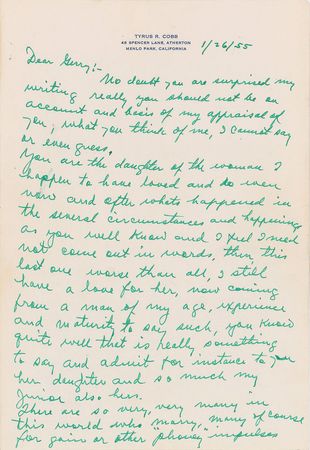 TYRUS R. COBB
48 SPENCER LANE, ATHERTON
MENLO PARK, CALIFORNIA
1/26/55
Dear Gerry:-
No doubt you are surprised my
writing really you should not be on
account and basis of my appraisal of
you, what you think of me, I cannot say
or even guess.
You are the daughter of the woman I
happen to have loved and do even
now and after whats happened in
the several circumstances and happenings
as you well know and I feel I need
not come out in words, then, this
last one worse than all, I still
have a love for her, now coming
from a man of my age, experience
and maturity to say such, you know
quite well that is really something
to say and admit for instance to you
her daughter and so much my
junior also hers.
There are so very, very many in
this world who marry, many of course
for gain or other "phoney" impulses